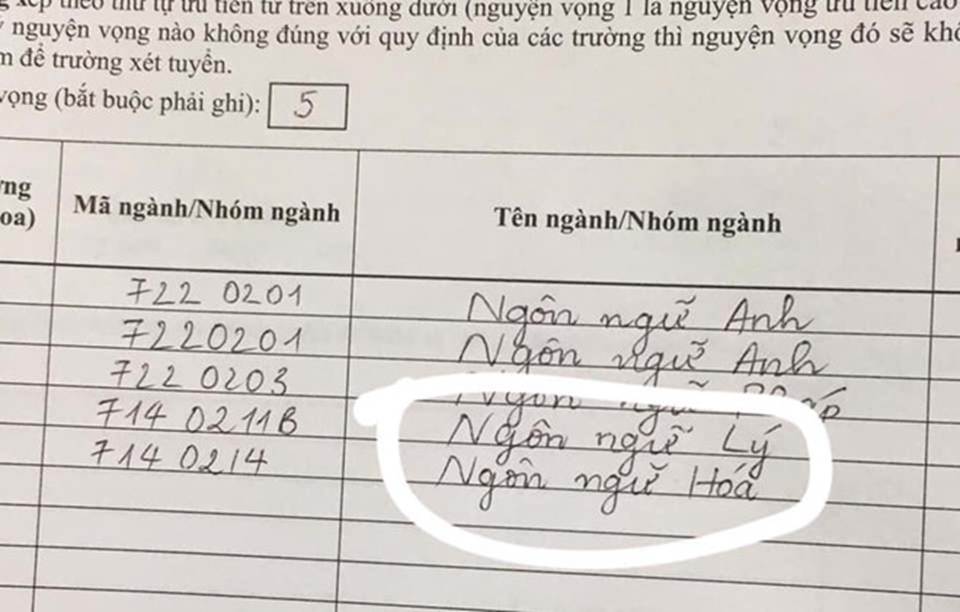 xếp theo thứ tự ưu tiên từ trên xuống dưới (nguyện vọng 1 là nguyện vọng ưu tiên cao
nguyện vọng nào không đúng với quy định của các trường thì nguyện vọng đó sẽ
để trường xét tuyển.
vọng (bắt buộc phải ghi): 5
Mã ngành/Nhóm ngành Tên ngành/Nhóm ngành
722 0201 Ngôn ngữ Anh
7220201 Ngôn ngữ Anh
722 0203 Ngôn ngữ Pháp
714 0211B Ngôn ngữ Lý
714 0214 Ngôn ngữ Hoá